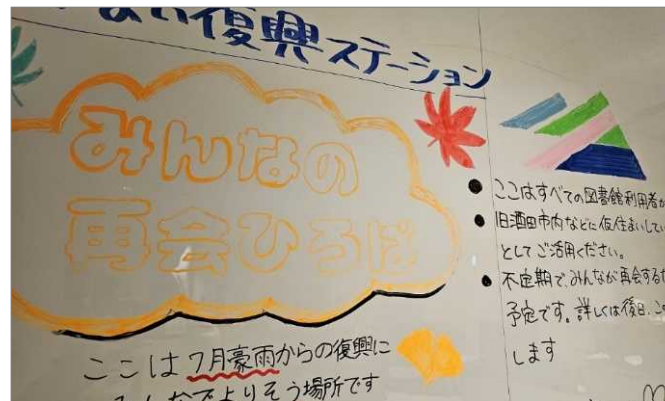 復興ステーション
みんなの
再会ひろば
ここは7月豪雨からの復興に
みんなでよりそう場所です
ここはすべての図書館利用者が
旧酒田市内などに仮住まいしてい
としてご活用ください。
不定期で、みんなが再会する
予定です。詳しくは後日、こ
します